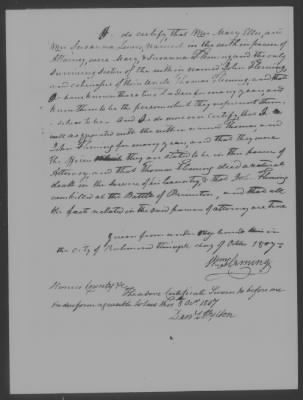 I do certify, that Mrs. Mary Ellis, and
Mrs. Susanna Lewis, named in the within power of
Attorney, were Mary & Susanna Fleming and the only
surviving Sisters of the within named John Fleming
and of his Uncle Thomas Fleming, and that
I have known these two Ladies for many years, and
know them to be the persons which they represent them-
selves to be. And I do moreover certify, that I
well acquainted with the within named Thomas and
John Fleming for many years, and that they were
the Officers they are stated to be in the power of
Attorney, and that Thomas Fleming died a natural
death in the Service of his Country, & that John Fleming
was killed at the Battle of Princeton, and that all
the facts related in the said power of attorney are true
Given from under my hand in
the City of Richmond this day of Octr. 1807
Wm Fleming
Henrico County to wit
The above Certificate Sworn to before me
in due form agreeable to law this 8 Oct. 1807
Danl. L. Hylton